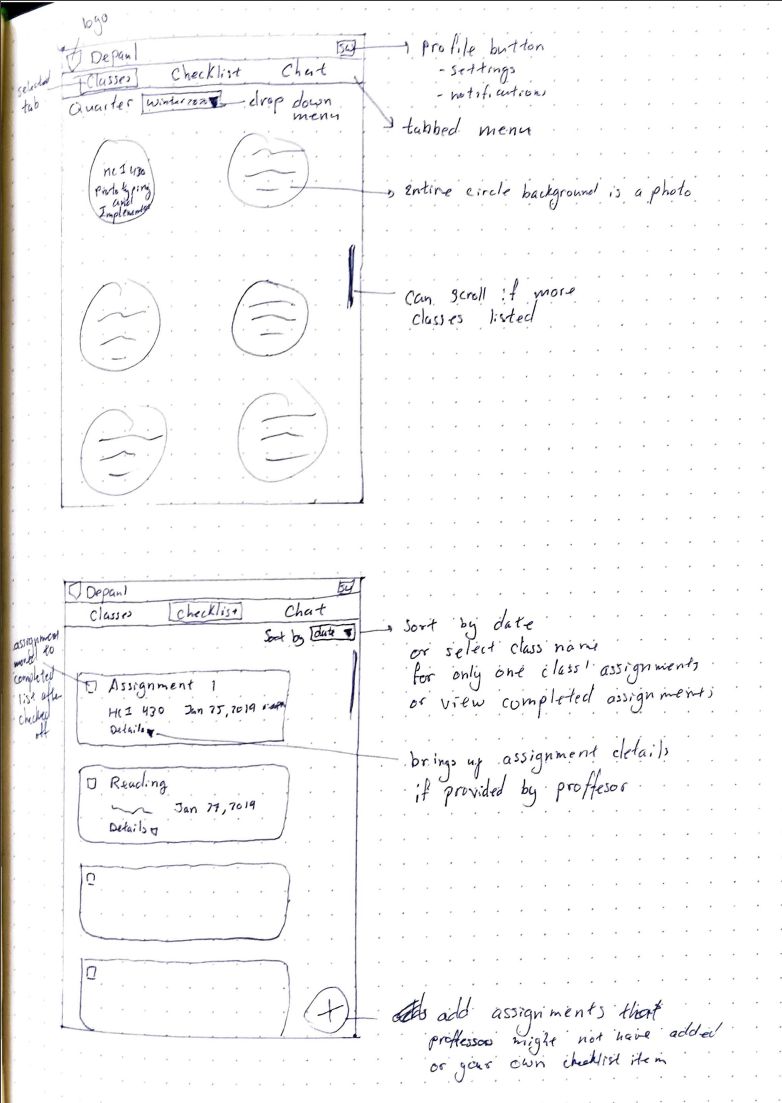 logo
Depaul
SW
Profile button
- settings
- notifications
selected
tab
Classes
Checklist
Chat
tabbed menu
Quarter
drop down
menu
HCI 430
Prototyping
and
Entire circle background is a photo
Can scroll if more
classes listed
Depaul
SW
Classes
Checklist
Chat
Sort by date
Sort by date
or select class name
for only one class' assignments
or view completed assignments
assignment
completed
list after
checked
off
Assignment 1
HCI 430 Jan 25, 2019
Details
brings up assignment details
if provided by proffesor
Reading
Jan 27, 2019
Details
+
add assignments that
might not have added
or your own checklist item